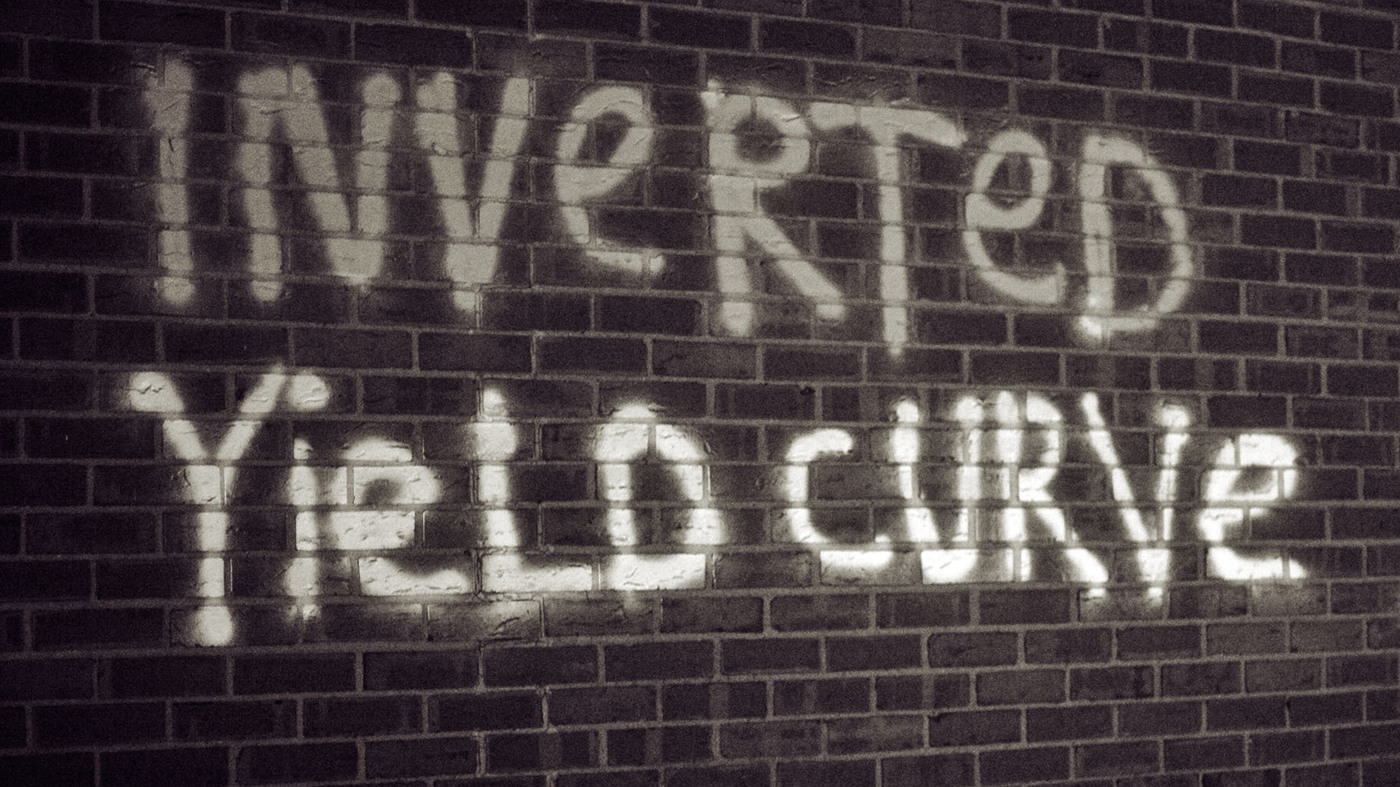 INVeRTeD
YieLD cURVe